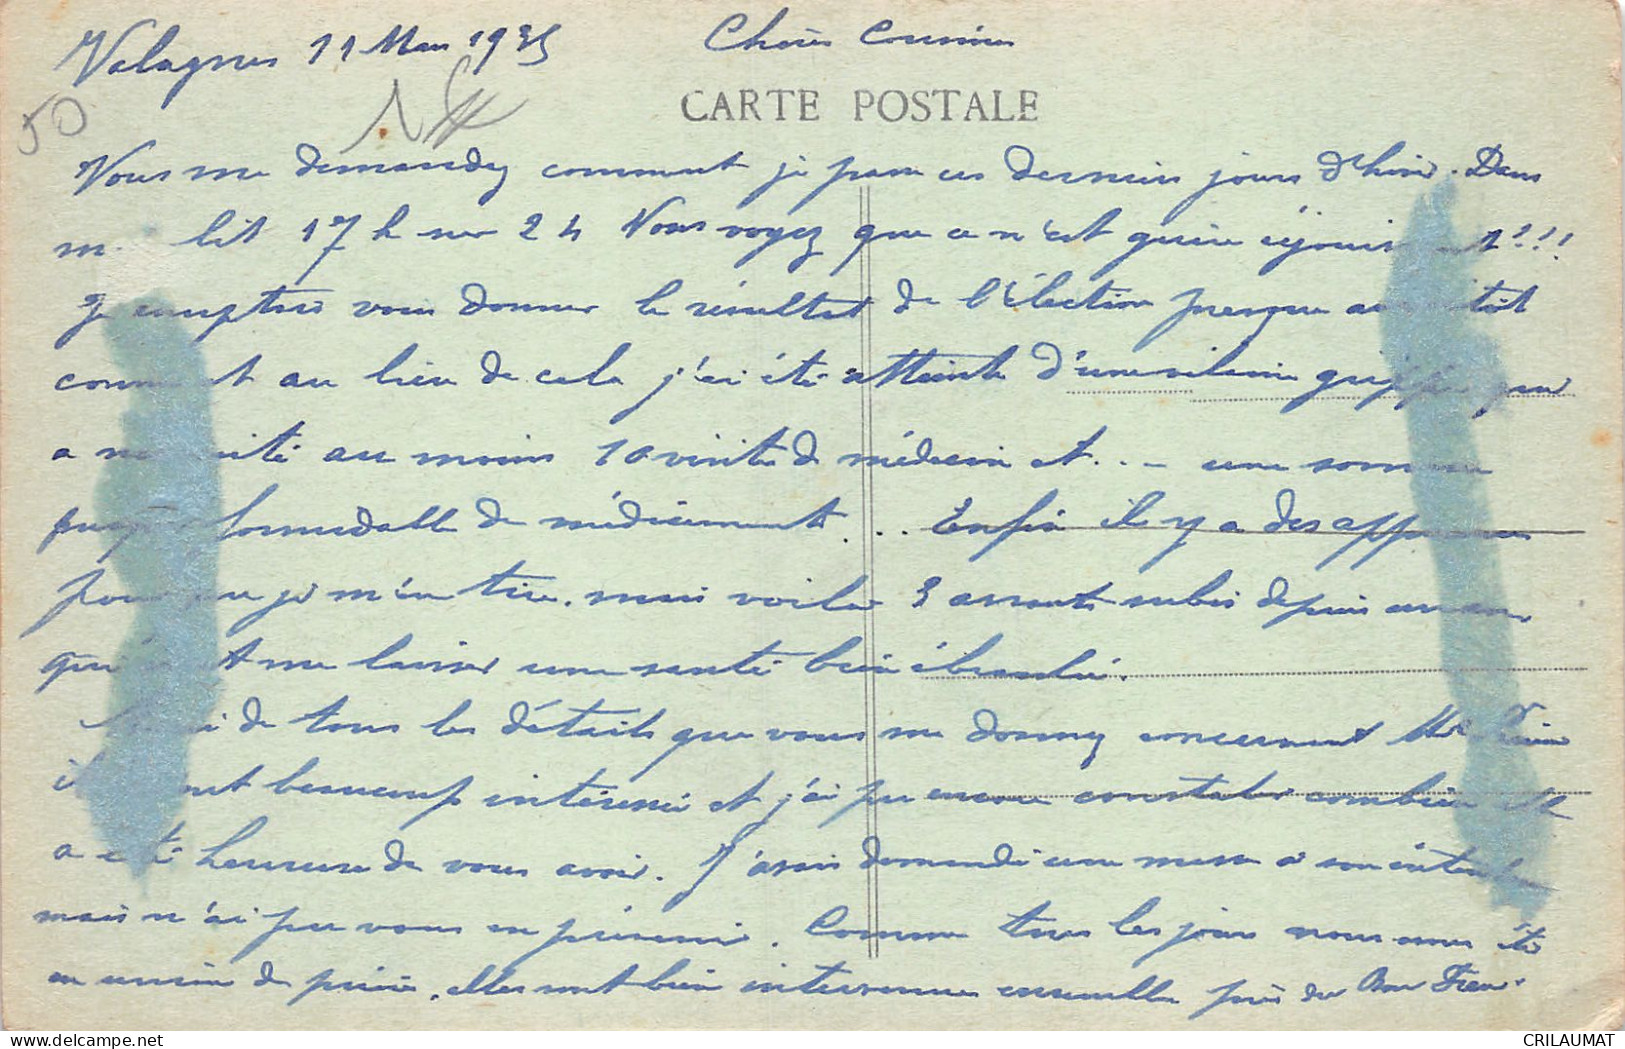 Valognes 11 Mars 1935 Chères Cousines
50
CARTE POSTALE
Vous me demandez comment je passe ces derniers jours d'hiver. Dans
mon lit 17 h sur 24 Vous voyez que ce n'est guère réjouissant !!!
Je comptais vous donner le résultat de l'élection presque aussitôt
connu et au lieu de cela j'ai été atteinte d'une vilaine grippe qui
a nécessité au moins 10 visites de médecin et... une somme
presque formidable de médicaments... Enfin il y a des apparences
pour que je m'en tire. mais voilà 3 assauts subis depuis un an
qui vont me laisser une santé bien ébranlée.
Merci de tous les détails que vous me donnez concernant Mlle
ils m'ont beaucoup intéressée et j'ai pu encore constater combien elle
a été heureuse de vous avoir. J'avais demandé une messe à son intention
mais n'ai pu vous en prévenir. Comme tous les jours nous avons été
en union de prière. elles ont bien intervenues ensemble près du Bon Dieu.
CRILAUMAT
delcampe.net